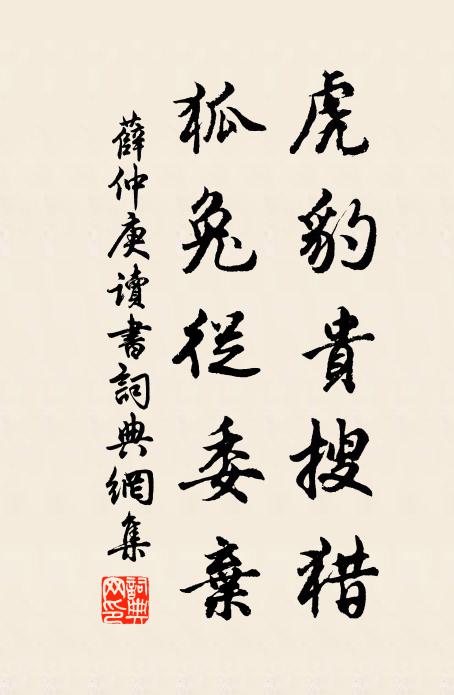 虎豹貴搜猎
狐兔從委棄
薛仲庚讀書詞典網集
詞典网印